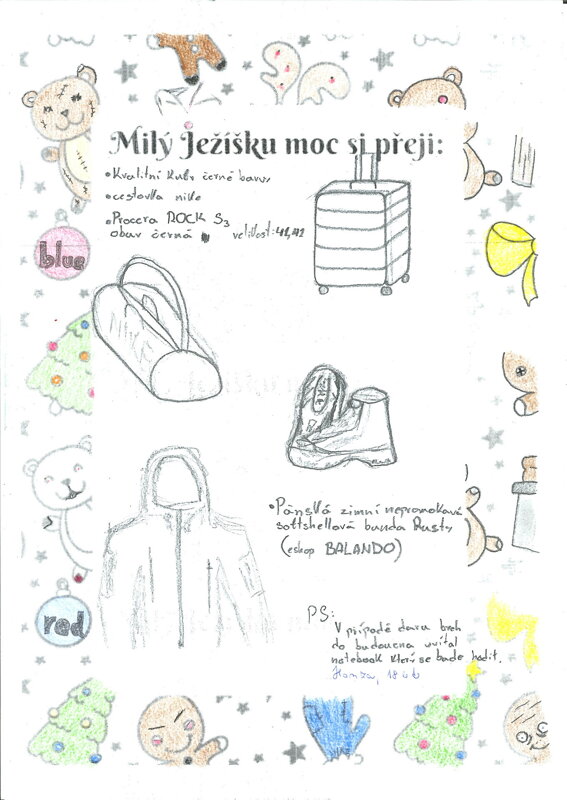 Milý Ježíšku moc si přeji:
• Kvalitní kufr černé barvy
• cestovka nike
• Procera ROCK S3
obuv černá velikost: 41,42
blue
NIKE
• Pánská zimní nepromokavá
softshellová bunda Rusty
(eshop BALANDO)
red
PS:
V případě daru bych
do budoucna uvítal
notebook který se bude hodit.
Honza, 18 let